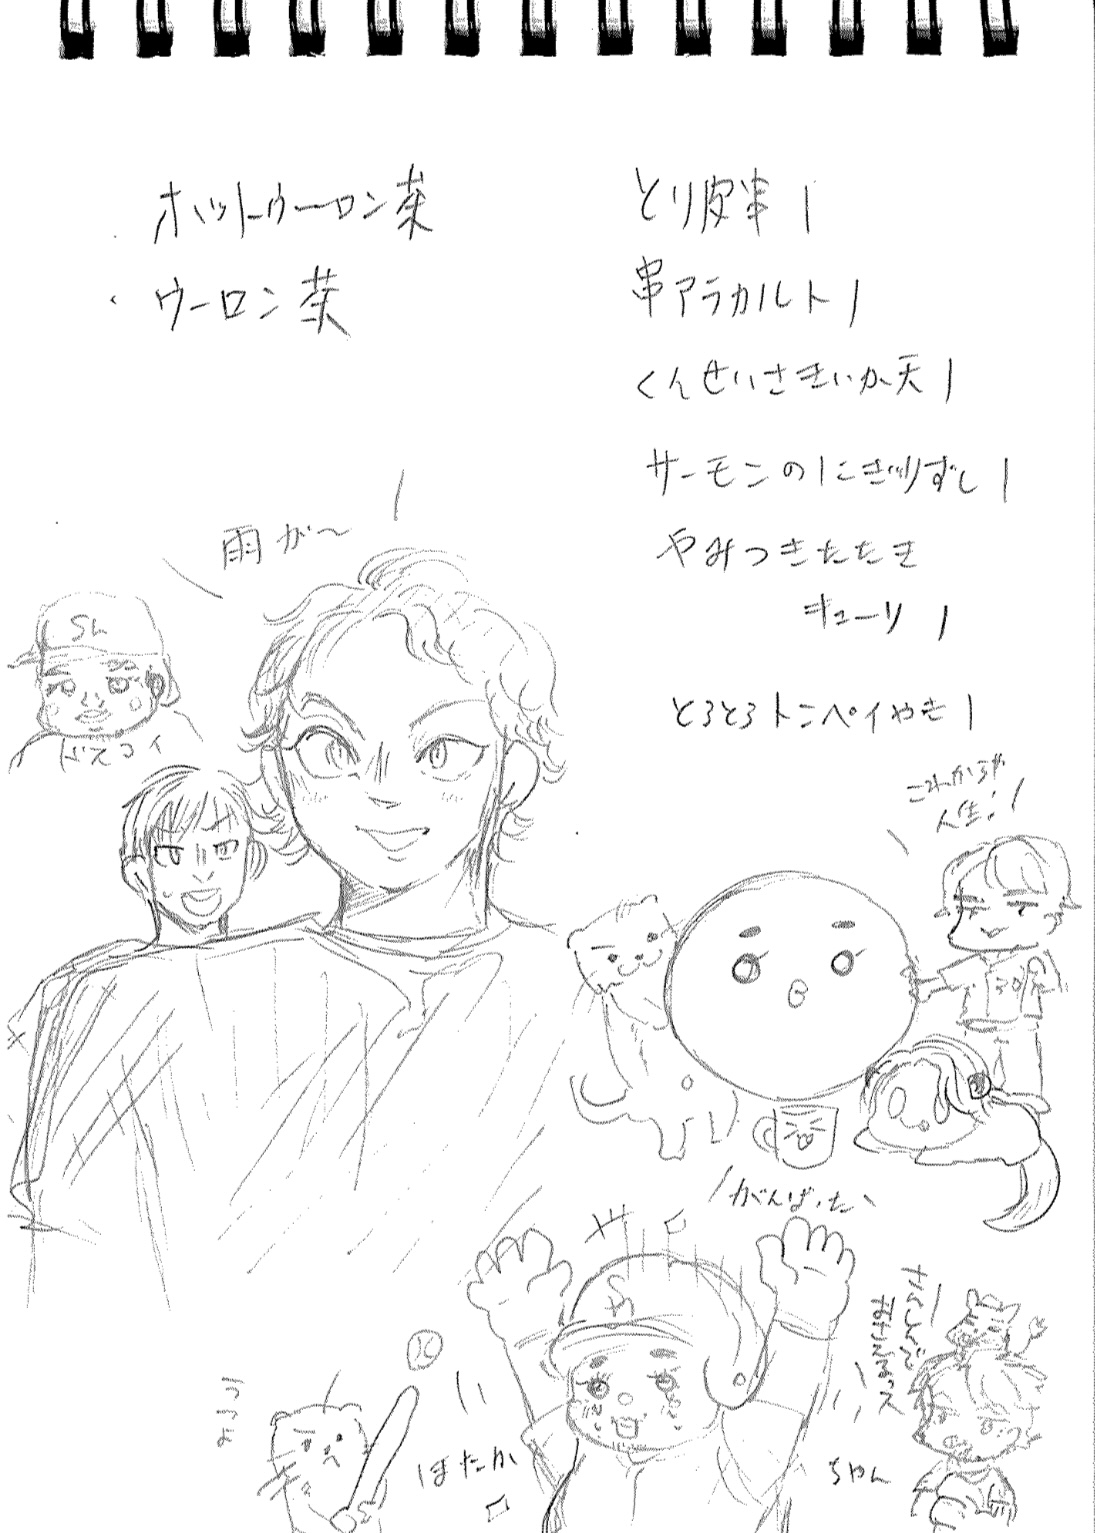 ホットウーロン茶
ウーロン茶
とり皮串 1
串アラカルト 1
くんせいさきいか天 1
サーモンのにぎりずし 1
やみつきたたき
キューリ 1
とろとろトンペイやき 1
雨が〜
SL
どスコイ
これからが
人生!
30
がんばった
ほたか
ちゃん